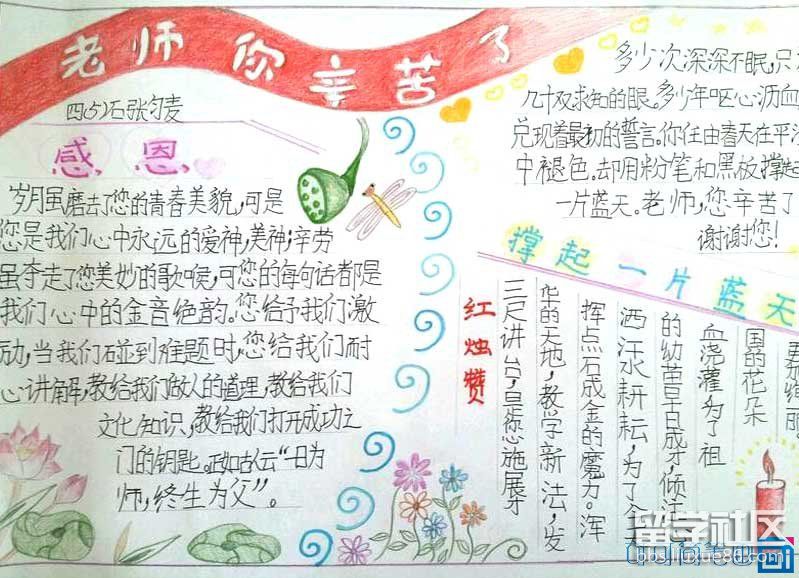 老师你辛苦了
四(5)石张匀麦
感恩
岁月虽磨去了您的青春美貌,可是
您是我们心中永远的爱神,美神;辛劳
虽夺走了您美妙的歌喉,可您的每句话都是
我们心中的金音绝韵。您给予我们激
励,当我们碰到难题时,您给我们耐
心讲解,教给我们做人的道理,教给我们
文化知识,教给我们打开成功之
门的钥匙。正如古人云“一日为
师,终生为父”。
多少次深深不眠,只
几十双求知的眼。多少年呕心沥血
兑现着最初的誓言。你任由春天在平
中褪色。却用粉笔和黑板撑起
一片蓝天。老师,您辛苦了
谢谢您!
撑起一片蓝天
红烛赞
三尺讲台,是您施展才
华的天地,教学新法,发
挥点石成金的魔力。浑
洒汗水耕耘,为了今天
的幼苗早日成才,倾注
血浇灌为了祖
国的花朵
留学社区
bbs.liuxue86.com